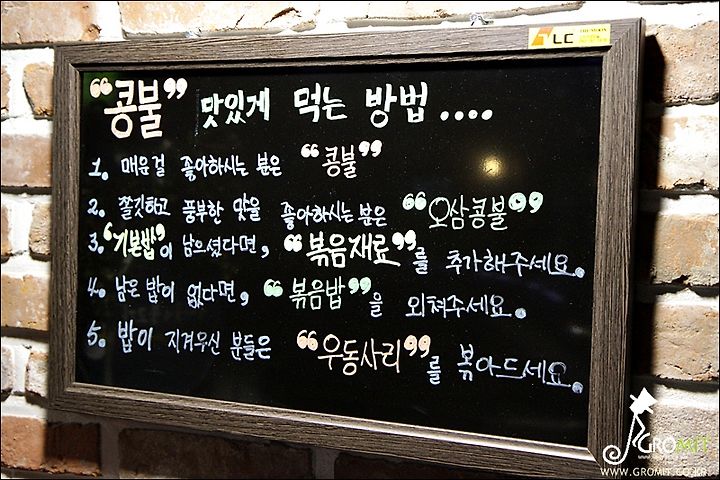 LC
"콩불" 맛있게 먹는 방법 ....
1. 매운걸 좋아하시는 분은 "콩불"
2. 쫄깃하고 풍부한 맛을 좋아하시는 분은 "오삼콩불"
3. "기본밥"이 남으셨다면, "볶음재료"를 추가해주세요.
4. 남은 밥이 없다면, "볶음밥"을 외쳐주세요.
5. 밥이 지겨우신 분들은 "우동사리"를 볶아드세요.
GROMIT
WWW.GROMIT.CO.KR